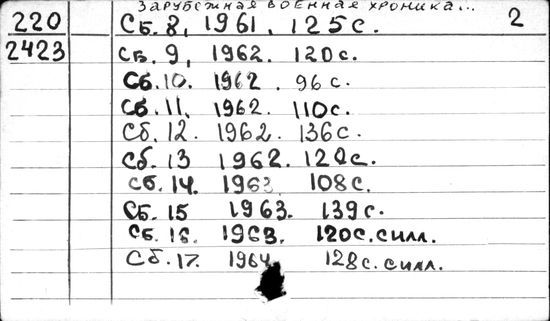 Зарубежная военная хроника...
220
2423
2
Сб. 8, 1961. 125 с.
Сб. 9, 1962. 120с.
Сб. 10. 1962. 96 с.
Сб. 11. 1962. 110с.
Сб. 12. 1962. 136 с.
Сб. 13 1962. 120с.
Сб. 14. 1963. 108 с.
Сб. 15 1963. 139 с.
Сб. 16. 1963. 120с. силл.
Сб. 17. 1964. 128 с. силл.